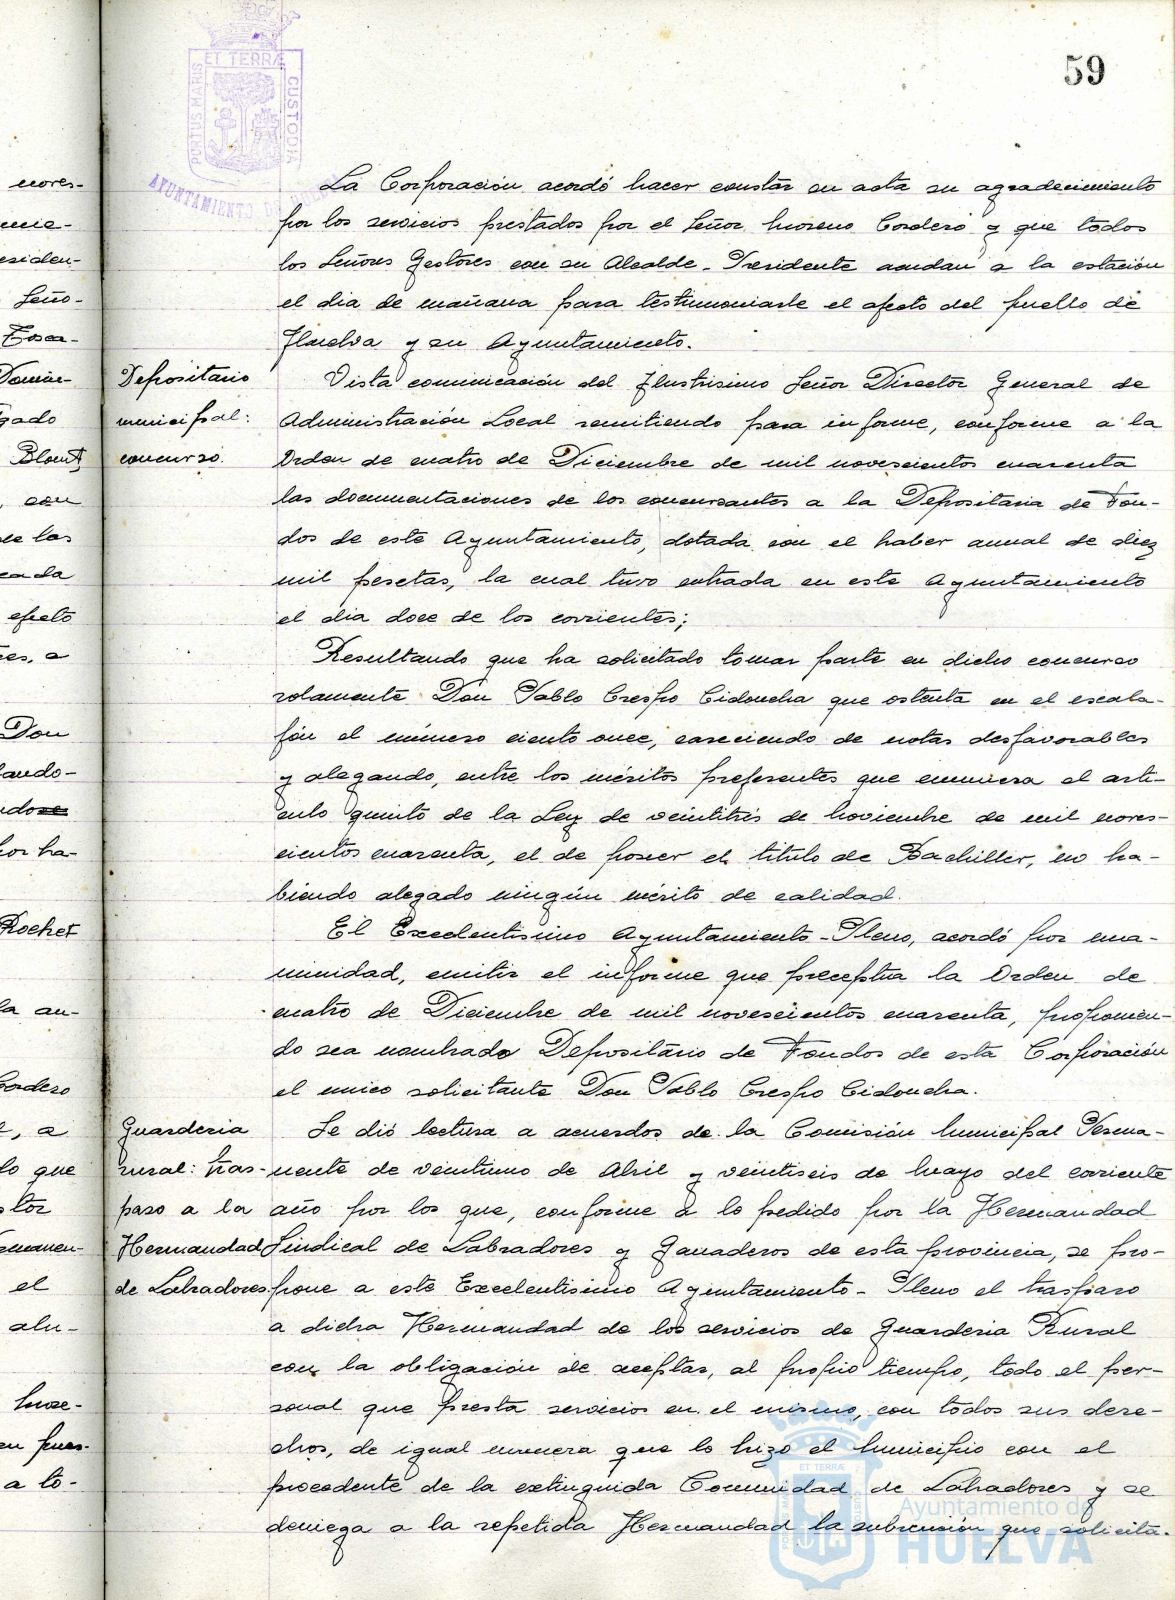 59
ET TERRÆ
PORTUS MARIS
CUSTODIA
AYUNTAMIENTO DE
nores-
esiden-
Seño-
Tosca-
gado
Blount
, con
de las
cada
efecto
Don
ndose
por ha-
Rochet
la au-
Cordero
, a
lo que
el
alu-
More-
a to-
La Corporación acordó hacer constar en acta su agradecimiento
por los servicios prestados por el Señor Moreno Cordero y que todos
los Señores Gestores con su Alcalde-Presidente acudan a la estación
el dia de mañana para testimoniarle el afecto del pueblo de
Huelva y su Ayuntamiento.
Depositario
municipal:
concurso.
Vista comunicación del Ilustrisimo Señor Director General de
Administración Local remitiendo para informe, conforme a la
Orden de cuatro de Diciembre de mil novescientos cuarenta
las documentaciones de los concursantes a la Depositaria de Fon-
dos de este Ayuntamiento, dotada con el haber anual de diez
mil pesetas, la cual tuvo entrada en este Ayuntamiento
el dia doce de los corrientes;
Resultando que ha solicitado tomar parte en dicho concurso
solamente Don Pablo Crespo Cidoncha que ostenta en el escala-
fón el número ciento once, careciendo de notas desfavorables
y alegando, entre los méritos preferentes que enumera el arti-
culo quinto de la Ley de veintitrés de Noviembre de mil noves-
cientos cuarenta, el de poseer el título de Bachiller, no ha-
biendo alegado ningún mérito de calidad.
El Excelentisimo Ayuntamiento-Pleno, acordó por una-
nimidad, emitir el informe que preceptua la Orden de
cuatro de Diciembre de mil novescientos cuarenta, proponien-
do sea nombrado Depositario de Fondos de esta Corporación
el unico solicitante Don Pablo Crespo Cidoncha.
Guarderia
rural: tras-
paso a la
Hermandad
de Labradores.
Se dió lectura a acuerdos de la Comisión Municipal Perma-
nente de veintiuno de Abril y veintiseis de Mayo del corriente
año por los que, conforme a lo pedido por la Hermandad
Sindical de Labradores y Ganaderos de esta provincia, se pro-
pone a este Excelentisimo Ayuntamiento-Pleno el traspaso
a dicha Hermandad de los servicios de Guarderia Rural
con la obligación de aceptar, al propio tiempo, todo el per-
sonal que presta servicios en el mismo, con todos sus dere-
chos, de igual manera que lo hizo el Municipio con el
procedente de la extinguida Comunidad de Labradores y se
deniega a la repetida Hermandad la subvención que solicita.
Ayuntamiento de
HUELVA